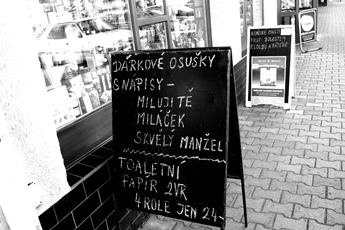 DÁRKOVÉ OSUŠKY
S NÁPISY -
MILUJI TĚ
MILÁČEK
SKVĚLÝ MANŽEL
TOALETNÍ
PAPÍR 2VR
4 ROLE JEN 24-